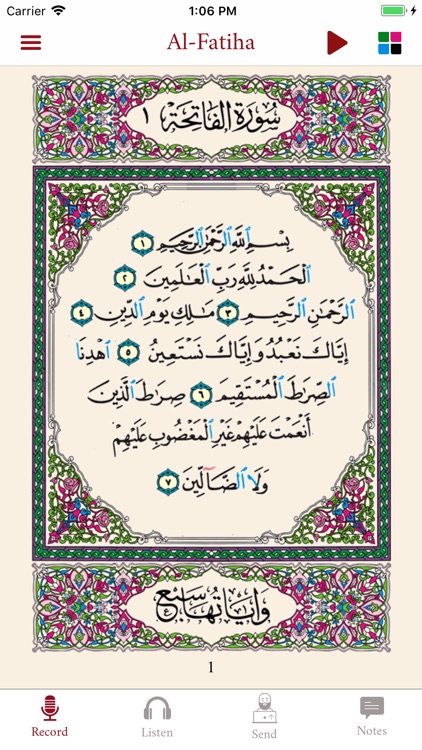 Carrier 1:06 PM
Al-Fatiha
سُورَةُ الفَاتِحَةِ ١
بِسْمِ اللَّهِ الرَّحْمَٰنِ الرَّحِيمِ ١
الْحَمْدُ لِلَّهِ رَبِّ الْعَالَمِينَ ٢
الرَّحْمَٰنِ الرَّحِيمِ ٣ مَٰلِكِ يَوْمِ الدِّينِ ٤
إِيَّاكَ نَعْبُدُ وَإِيَّاكَ نَسْتَعِينُ ٥ اهْدِنَا
الصِّرَٰطَ الْمُسْتَقِيمَ ٦ صِرَٰطَ الَّذِينَ
أَنْعَمْتَ عَلَيْهِمْ غَيْرِ الْمَغْضُوبِ عَلَيْهِمْ
وَلَا الضَّآلِّينَ ٧
وَآيَاتُهَا سَبْعٌ
1
Record Listen Send Notes